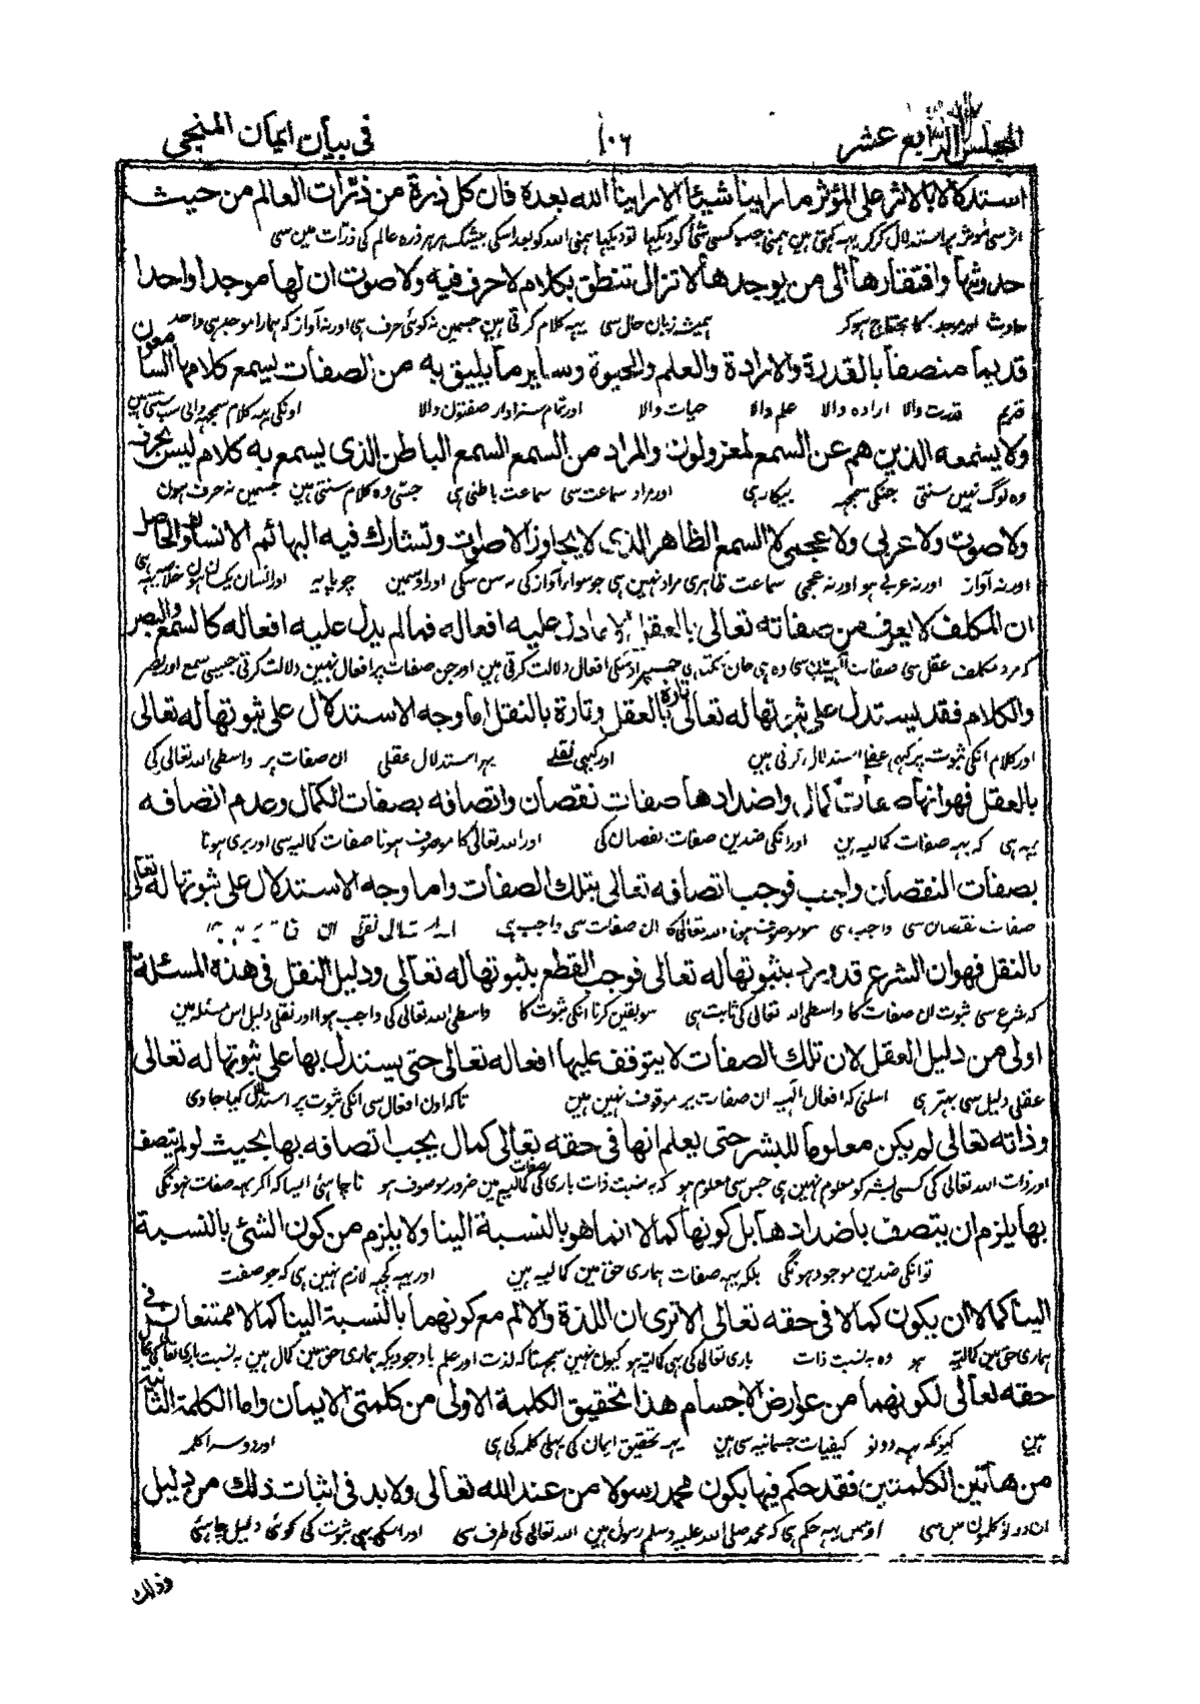 المجلس الرابع عشر
١٠٦
فى بيان ايمان المنجى
استدلالا بالاثر على المؤثر ما راينا شيئا الا راينا الله بعده فان كل ذرة من ذرات العالم من حيث
اثر سى مؤثر پر استدلال كركر يهه كهتى هين همنى جب كسى شئ كو ديكها تو ديكها همنى الله كو بعد اسكى بيشك هر هر ذره عالم كى ذرات مين سى
حدوثها وافتقارها الى من يوجدها لا تزال تنطق بكلام لا حرف فيه ولا صوت ان لها موجدا واحدا
حادث اور موجد كا محتاج هو كر هميشه زبان حال سى يهه كلام كرتى هين جسمين نه كوئى حرف هى اور نه آواز كه همارا موجد هى واحد
قديما متصفا بالقدرة والارادة والعلم والحيوة وساير ما يليق به من الصفات يسمع كلامها السامعون
قديم قدرت والا اراده والا علم والا حيات والا اور تمام سزاوار صفتون والا اونكى يهه كلام سمجهه والى سب سنتى هين
ولا يسمعه الذين هم عن السمع لمعزولون والمراد من السمع السمع الباطن الذى يسمع به كلام ليس بحرف
وه لوگ نهين سنتى جنكى سمجهه بيكار هى اور مراد سماعت سى سماعت باطنى هى جسى وه كلام سنتى هين جسمين نه حرف هون
ولا صوت ولا عربى ولا عجمى لا السمع الظاهر الذى لا يجاوز الاصوات وتشارك فيه البهائم الانسان والحاصل
اور نه آواز اور نه عربى هو اور نه عجمى سماعت ظاهرى مراد نهين هى جو سوا آواز كى نه سن سكى اور اوسمين چوپايه اور انسان يكسان هون خلاصه يهه هى
ان المكلف لا يعرف من صفاته تعالى بالعقل الا ما دل عليه افعاله فما لم يدل عليه افعاله كالسمع والبصر
كه مرد مكلف عقل سى صفات مين سى وه هى جان سكتا هى جسپر اوسكى افعال دلالت كرتى هين اور جن صفات پر افعال نهين دلالت كرتى جيسى سمع اور بصر
والكلام فقد يستدل على ثبوتها له تعالى تارة بالعقل وتارة بالنقل اما وجه الاستدلال على ثبوتها له تعالى
اور كلام انكى ثبوت پر كبهى عقلى استدلال كرتى هين اور كبهى نقلى پهر استدلال عقلى ان صفات پر واسطى الله تعالى كى
بالعقل فهو انها صفات كمال واضدادها صفات نقصان واتصافه بصفات الكمال وعدم اتصافه
يهه هى كه يهه صفات كماليه هين اور انكى ضدين صفات نقصان كى اور الله تعالى كا موصوف هونا صفات كماليه سى اور برى هونا
بصفات النقصان واجب فوجب اتصافه تعالى بتلك الصفات واما وجه الاستدلال على ثبوتها له تعالى
صفات نقصان سى واجب هى سو موصوف هونا الله تعالى كا ان صفات سى واجب هى
بالنقل فهو ان الشرع قد ورد بثبوتها له تعالى فوجب القطع بثبوتها له تعالى ودليل النقل فى هذه المسئلة
كه شرع سى ثبوت ان صفات كا واسطى الله تعالى كى ثابت هى سو يقين كرنا انكى ثبوت كا واسطى الله تعالى كى واجب هوا اور نقلى دليل اس مسئله مين
اولى من دليل العقل لان تلك الصفات لا يتوقف عليها افعاله تعالى حتى يستدل بها على ثبوتها له تعالى
عقلى دليل سى بهتر هى اسلئى كه افعال الهيه ان صفات پر موقوف نهين هين تاكه اون افعال سى انكى ثبوت پر استدلال كيا جاوى
وذاته تعالى لم يكن معلوما للبشر حتى يعلم انها فى حقه تعالى كمال يجب اتصافه بها بحيث لو لم يتصف
اور ذات الله تعالى كى كسى بشر كو معلوم نهين هى جس سى معلوم هو كه به نسبت ذات بارى كى صفات كماليه هين ضرور موصوف هو نا چاهئى ايسا كه اگر يهه صفات نهونگى
بها يلزم ان يتصف باضدادها بل كونها كمالا انما هو بالنسبة الينا ولا يلزم من كون الشئ بالنسبة
تو انكى ضدين موجود هونگى بلكه يهه صفات همارى حق مين كماليه هين اور يهه كچهه لازم نهين هى كه جو صفت
الينا كمالا ان يكون كمالا فى حقه تعالى الا ترى ان اللذة والالم مع كونهما بالنسبة الينا كمالا ممتنعان فى
همارى حق مين كماليه هو وه به نسبت ذات بارى تعالى كى هى كماليه هو كيون نهين سمجهتا كه لذت اور علم باوجوديكه همارى حق مين كمال هين به نسبت بارى تعالى كى محال
حقه تعالى لكونهما من عوارض الاجسام هذا تحقيق الكلمة الاولى من كلمتى الايمان واما الكلمة الثانية
هين كيونكه يهه دونو كيفيات جسمانيه سى هين يهه تحقيق ايمان كى پهلى كلمه كى هى اور دوسرا كلمه
من هاتين الكلمتين فقد حكم فيها بكون محمد رسولا من عند الله تعالى ولا بد فى اثبات ذلك من دليل
ان دونو كلمون مين سى اوسمين يهه حكم هى كه محمد صلى الله عليه وسلم رسول هين الله تعالى كى طرف سى اور اسكى هى ثبوت كى كوئى دليل چاهئى
وذلك